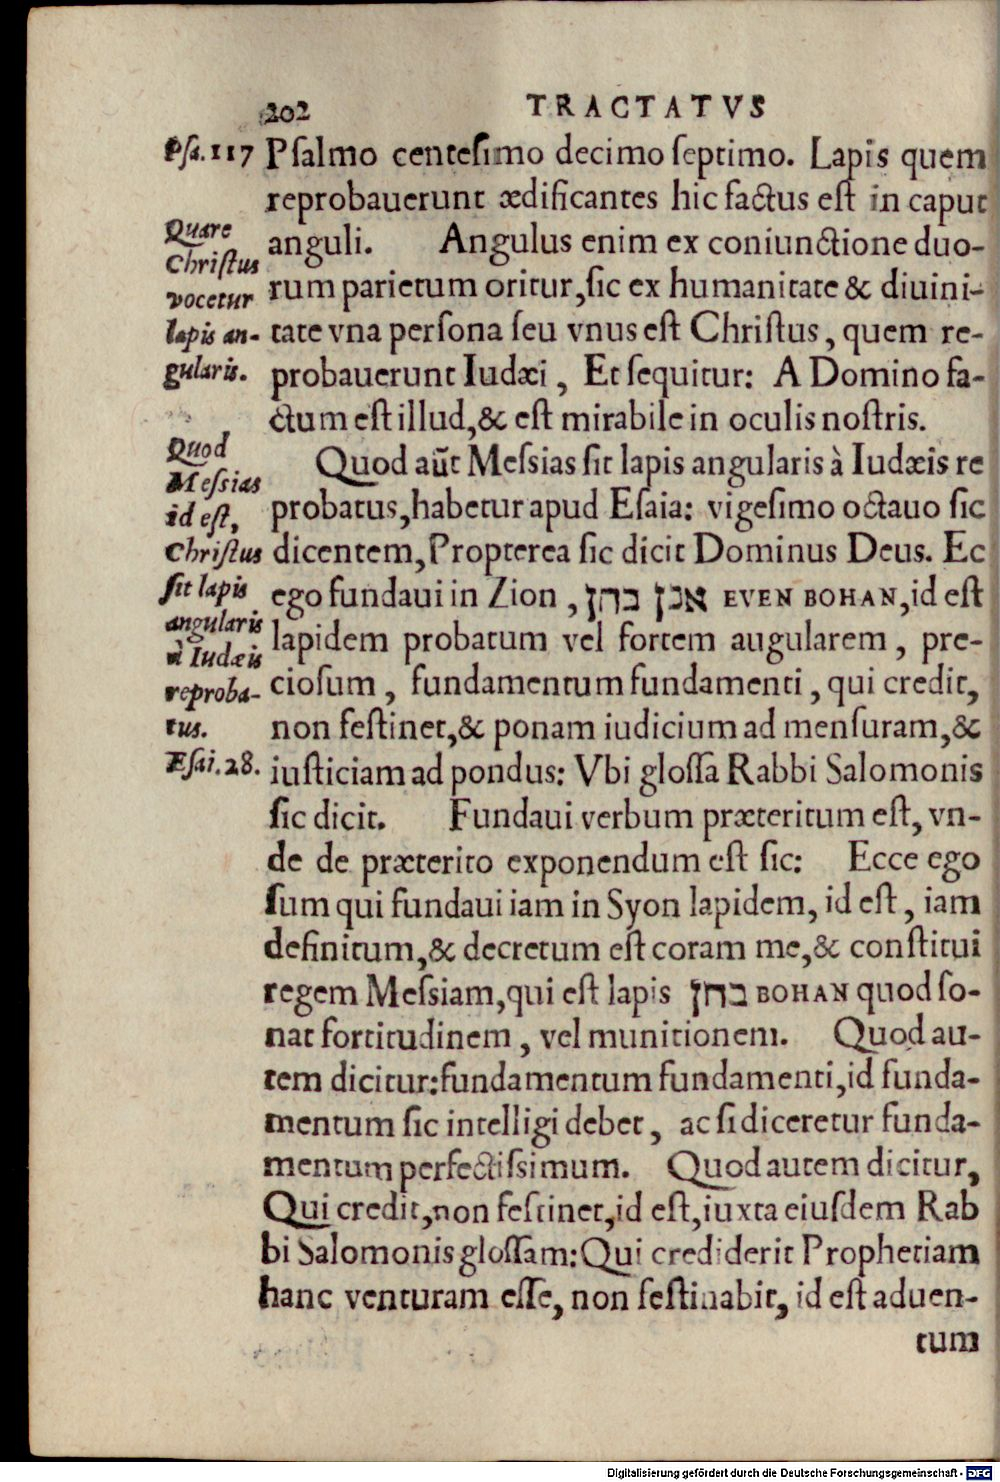 202 TRACTATVS
Psa.117 Psalmo centesimo decimo septimo. Lapis quem
reprobauerunt ædificantes hic factus est in caput
Quare
Christus
vocetur
lapis an-
gularis.
anguli. Angulus enim ex coniunctione duo-
rum parietum oritur, sic ex humanitate & diuini-
tate vna persona seu vnus est Christus, quem re-
probauerunt Iudæi, Et sequitur: A Domino fa-
ctum est illud, & est mirabile in oculis nostris.
Quod
Messias
id est,
Christus
sit lapis
angularis
à Iudæis
reproba-
tus.
Esai.28.
Quod aūt Messias sit lapis angularis à Iudæis re
probatus, habetur apud Esaia: vigesimo octauo sic
dicentem, Propterea sic dicit Dominus Deus. Ec
ego fundaui in Zion, אבן בחן EVEN BOHAN, id est
lapidem probatum vel fortem augularem, pre-
ciosum, fundamentum fundamenti, qui credit,
non festinet, & ponam iudicium ad mensuram, &
iusticiam ad pondus: Vbi glossa Rabbi Salomonis
sic dicit. Fundaui verbum præteritum est, vn-
de de præterito exponendum est sic: Ecce ego
sum qui fundaui iam in Syon lapidem, id est, iam
definitum, & decretum est coram me, & constitui
regem Messiam, qui est lapis בחן BOHAN quod so-
nat fortitudinem, vel munitionem. Quod au-
tem dicitur: fundamentum fundamenti, id funda-
mentum sic intelligi debet, ac si diceretur funda-
mentum perfectissimum. Quod autem dicitur,
Qui credit, non festinet, id est, iuxta eiusdem Rab
bi Salomonis glossam: Qui crediderit Prophetiam
hanc venturam esse, non festinabit, id est aduen-
tum
Digitalisierung gefördert durch die Deutsche Forschungsgemeinschaft - DFG